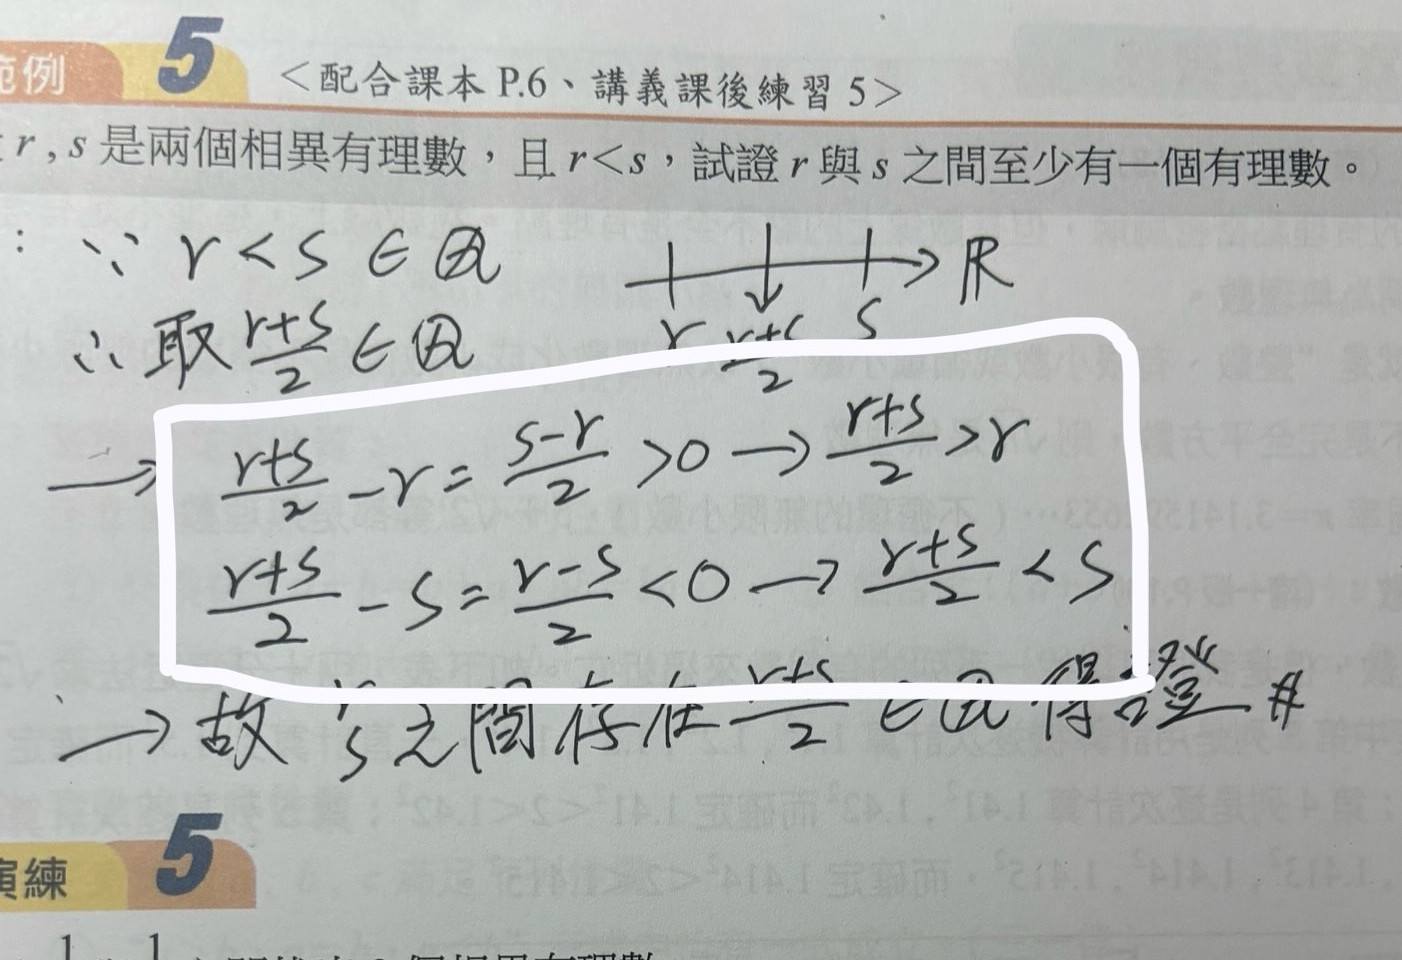 範例 5 <配合課本 P.6、講義課後練習 5>
r , s 是兩個相異有理數，且 r<s，試證 r 與 s 之間至少有一個有理數。
: ∵ r < s ∈ ℚ
ℝ
r (r+s)/2 s
∴ 取 (r+s)/2 ∈ ℚ
→ (r+s)/2 - r = (s-r)/2 > 0 → (r+s)/2 > r
(r+s)/2 - s = (r-s)/2 < 0 → (r+s)/2 < s
→ 故 r s 之間存在 (r+s)/2 ∈ ℚ 得證 #
演練 5